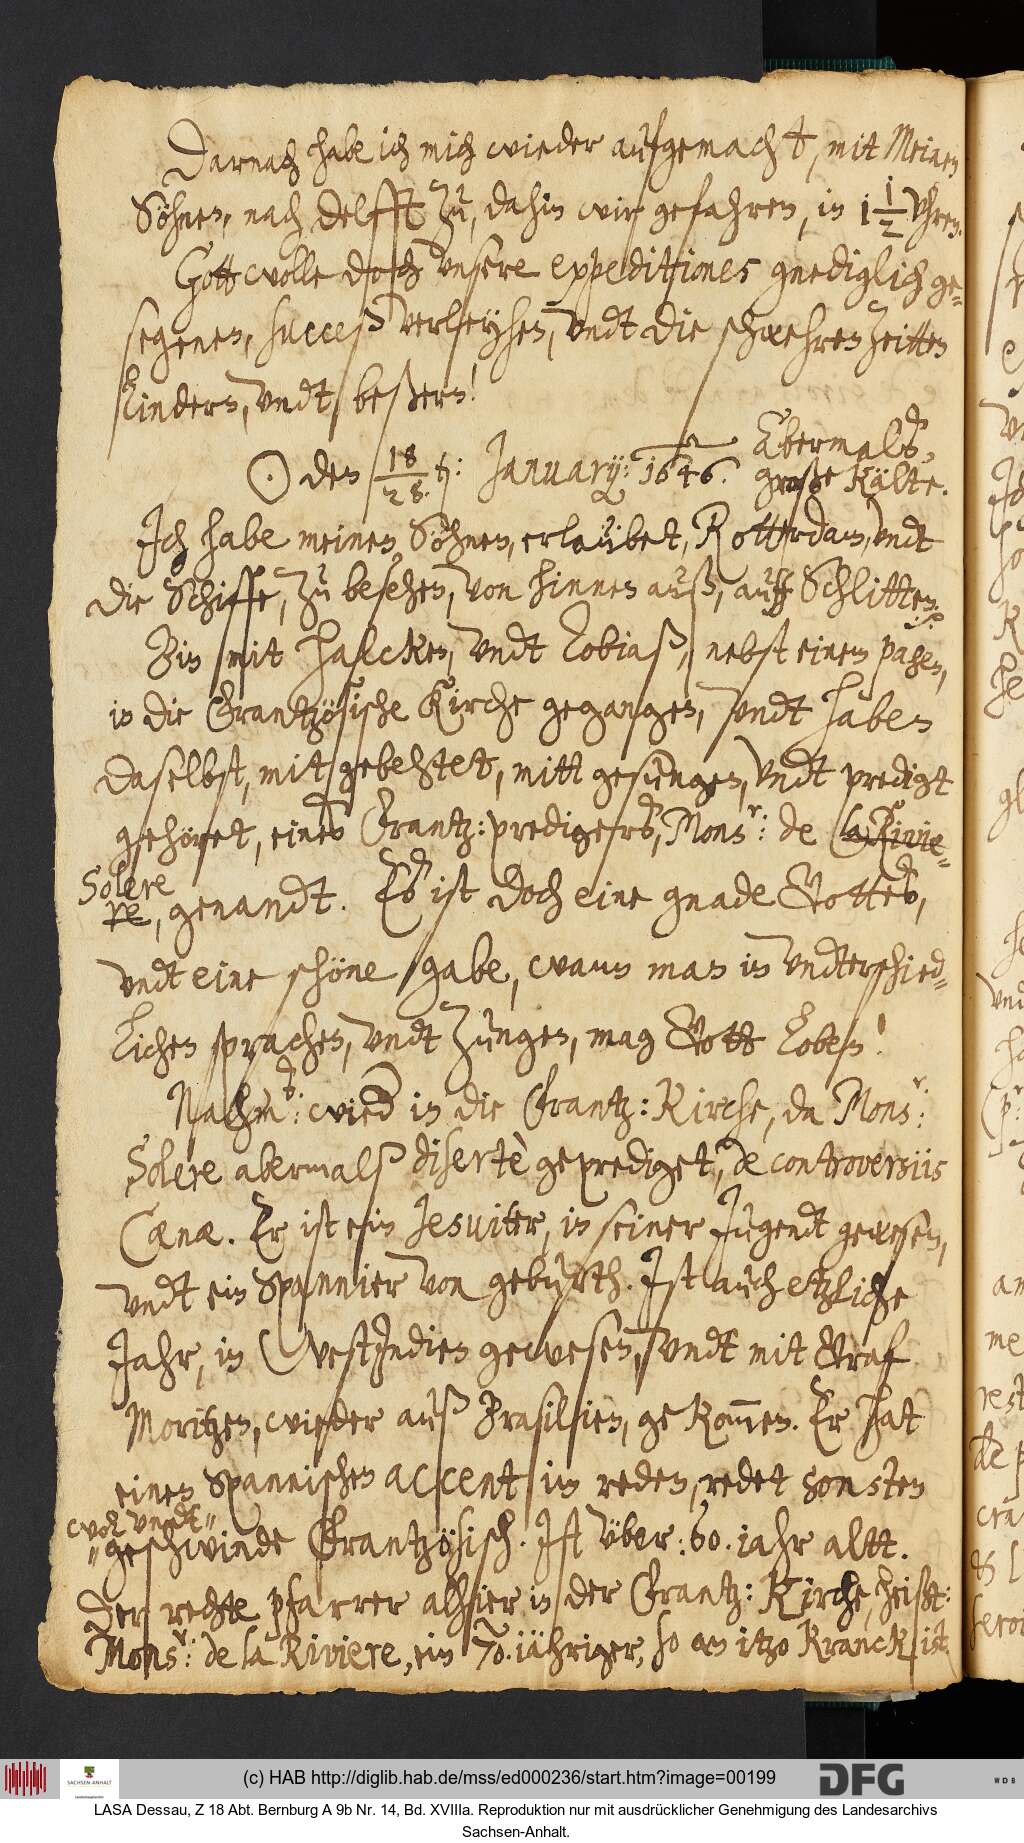 Darnach habe ich mich wieder aufgemacht, mit Meinen
Söhnen, nach Delfft zu, dahin wir gefahren, in 1 1/2 Uhren.
Gott wolle doch unsere expeditiones gnediglich ge-
segenen, succeß verleyhen, undt die schwehren zeitten
lindern, undt beßern!
☉ den 18/28. t: January: 1646. Abermals,
große Kälte.
Ich habe meinen Söhnen, erlaubet, Rotterdam, undt
die Schiffe, zu besehen, von hinnen auß, auff Schlitten.
Bin mit Halcken, undt Tobiaß, nebst einem pagen,
in die Frantzösische Kirche gegangen, undt haben
daselbst, mit gebehtet, mitt gesungen, undt predigt
gehöret, eines Frantz: predigers, Monsr: de la Rivie-
Solere
re, genandt. Es ist doch eine gnade Gottes,
undt eine schöne gabe, wann man in undterschied-
lichen sprachen, undt Zungen, mag Gott loben!
Nachmd: wied in die Frantz: Kirche, da Monsr:
Solere abermalß disertè geprediget, de controversiis
Cænæ. Er ist ein Jesuiter, in seiner Jugendt gewesen,
undt ein Spannier von geburth. Ist auch etzliche
Jahr, in WestIndien gewesen, undt mit Graf
Moritzen, wieder auß Brasilien, gekommen. Er hat
einen Spannischen accent im reden, redet sonsten
wol undt"
"geschwinde Frantzösisch. Ist über: 60. iahr altt.
Der rechte pfarrer alhier in der Frantz: Kirche, heist:
Monsr: de la Riviere, ein 70.iähriger, so an itzo Kranck ist
(c) HAB http://diglib.hab.de/mss/ed000236/start.htm?image=00199
SACHSEN-ANHALT
DFG
WDB
LASA Dessau, Z 18 Abt. Bernburg A 9b Nr. 14, Bd. XVIIIa. Reproduktion nur mit ausdrücklicher Genehmigung des Landesarchivs
Sachsen-Anhalt.